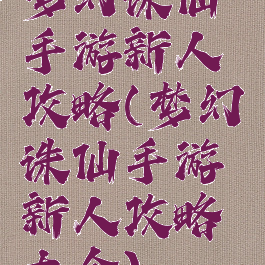 梦幻诛仙
手游新人
攻略(梦幻
诛仙手游
新人攻略
大全)